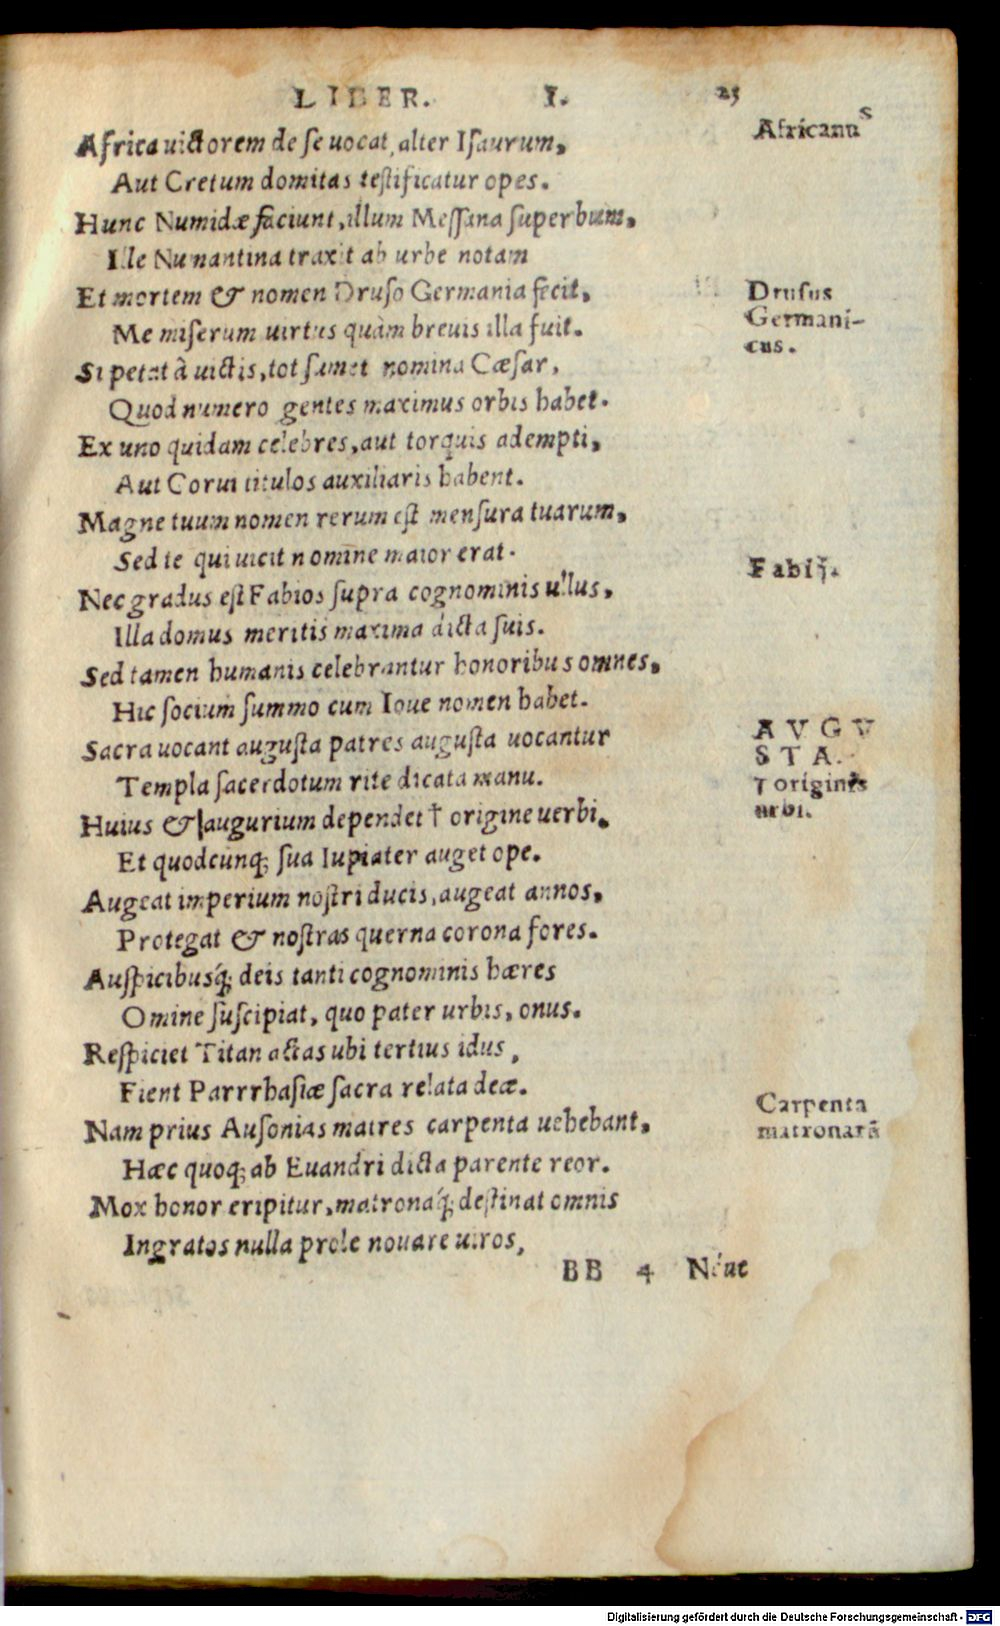 LIBER. I. 25
Africa uictorem de se uocat, alter Isaurum,
Africanus
Aut Cretum domitas testificatur opes.
Hunc Numidæ faciunt, illum Messana superbum,
Ille Numantina traxit ab urbe notam
Et mortem & nomen Druso Germania fecit,
Drusus
Germani-
cus.
Me miserum uirtus quàm breuis illa fuit.
Si petat à uictis, tot sumet nomina Cæsar,
Quod numero gentes maximus orbis habet.
Ex uno quidam celebres, aut torquis adempti,
Aut Corui titulos auxiliaris habent.
Magne tuum nomen rerum est mensura tuarum,
Sed te qui uicit nomine maior erat.
Fabij.
Nec gradus est Fabios supra cognominis ullus,
Illa domus meritis maxima dicta suis.
Sed tamen humanis celebrantur honoribus omnes,
Hic socium summo cum Ioue nomen habet.
Sacra uocant augusta patres augusta uocantur
AVGV
STA.
† origines
urbi.
Templa sacerdotum rite dicata manu.
Huius & augurium dependet † origine uerbi,
Et quodcunq; sua Iupiater auget ope.
Augeat imperium nostri ducis, augeat annos,
Protegat & nostras querna corona fores.
Auspicibusq́; deis tanti cognominis hæres
Omine suscipiat, quo pater urbis, onus.
Respiciet Titan actas ubi tertius idus,
Fient Parrrhasiæ sacra relata deæ.
Carpenta
matronarũ
Nam prius Ausonias matres carpenta uehebant,
Hæc quoq; ab Euandri dicta parente reor.
Mox honor eripitur, matronaq́; destinat omnis
Ingratos nulla prole nouare uiros,
BB 4 Néue
Digitalisierung gefördert durch die Deutsche Forschungsgemeinschaft - DFG